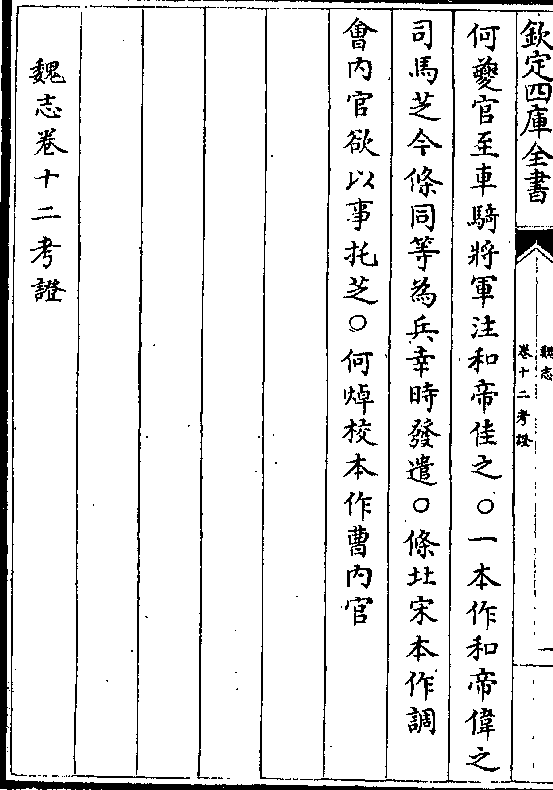 欽定四庫全書
魏志
卷十二考證
一
何夔官至車騎將軍注和帝佳之○一本作和帝偉之
司馬芝今條同等為兵幸時發遣○條北宋本作調
會內官欲以事托芝○何焯校本作曹內官
魏志卷十二考證